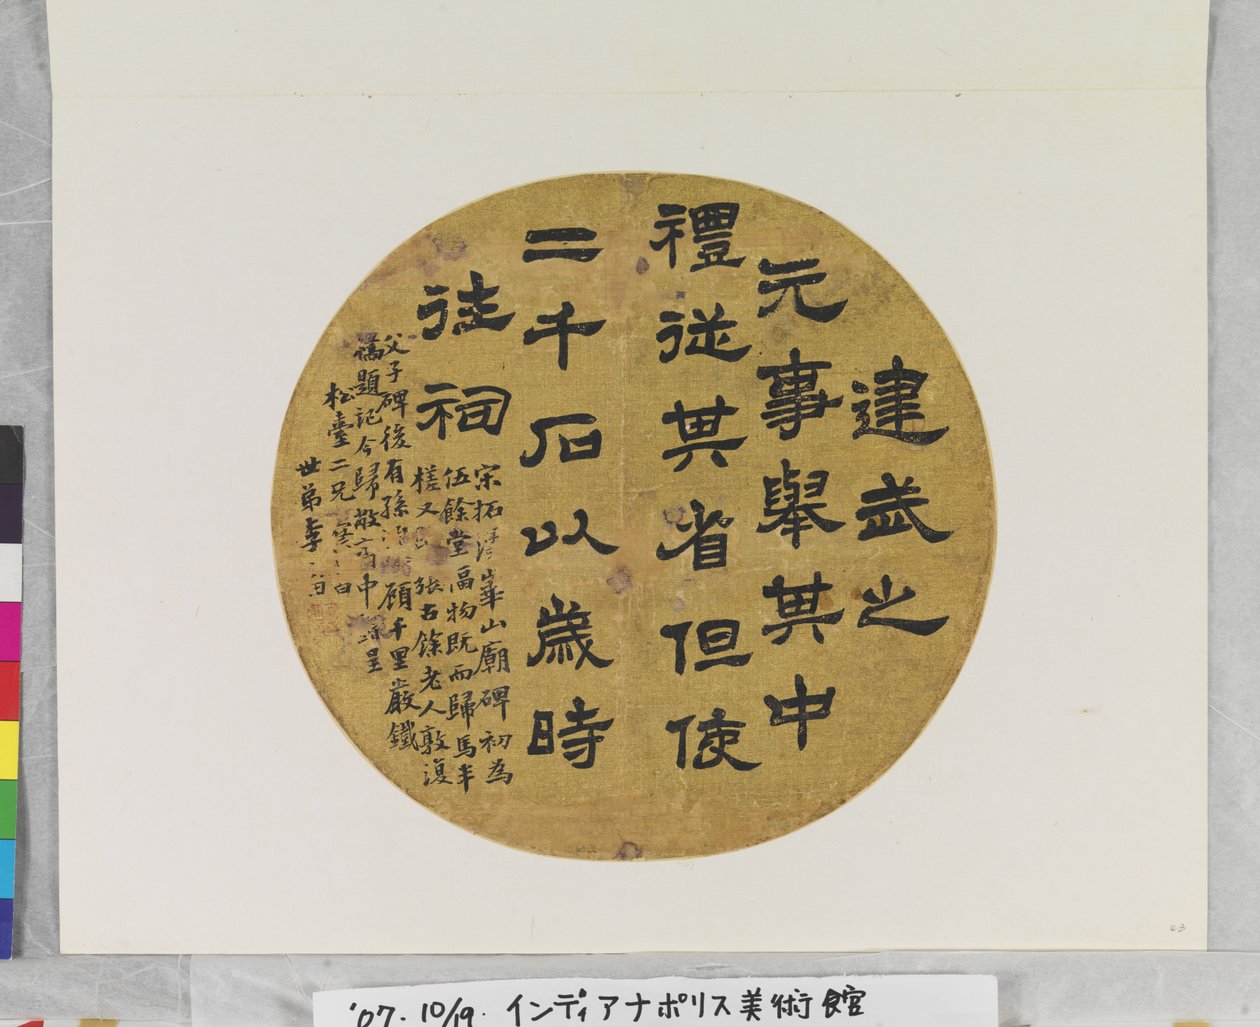 建武之
元事舉其中
禮從其省但使
二千石以歲時
往祠
宋拓 華山廟碑初為
伍餘堂 物既而歸馬半
槎又 張古餘老人敦復
父子碑後有孫 顧千里嚴鐵
橋題記今歸敝 中 呈
松臺二兄
世弟季
'07. 10/19. インディアナポリス美術館
43